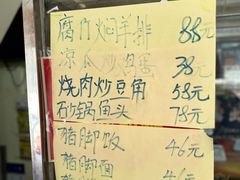 腐竹焖羊排 88元
凉瓜炒 38元
烧肉炒豆角 58元
砂锅鱼头 78元
猪脚饭 46元
猪脚面